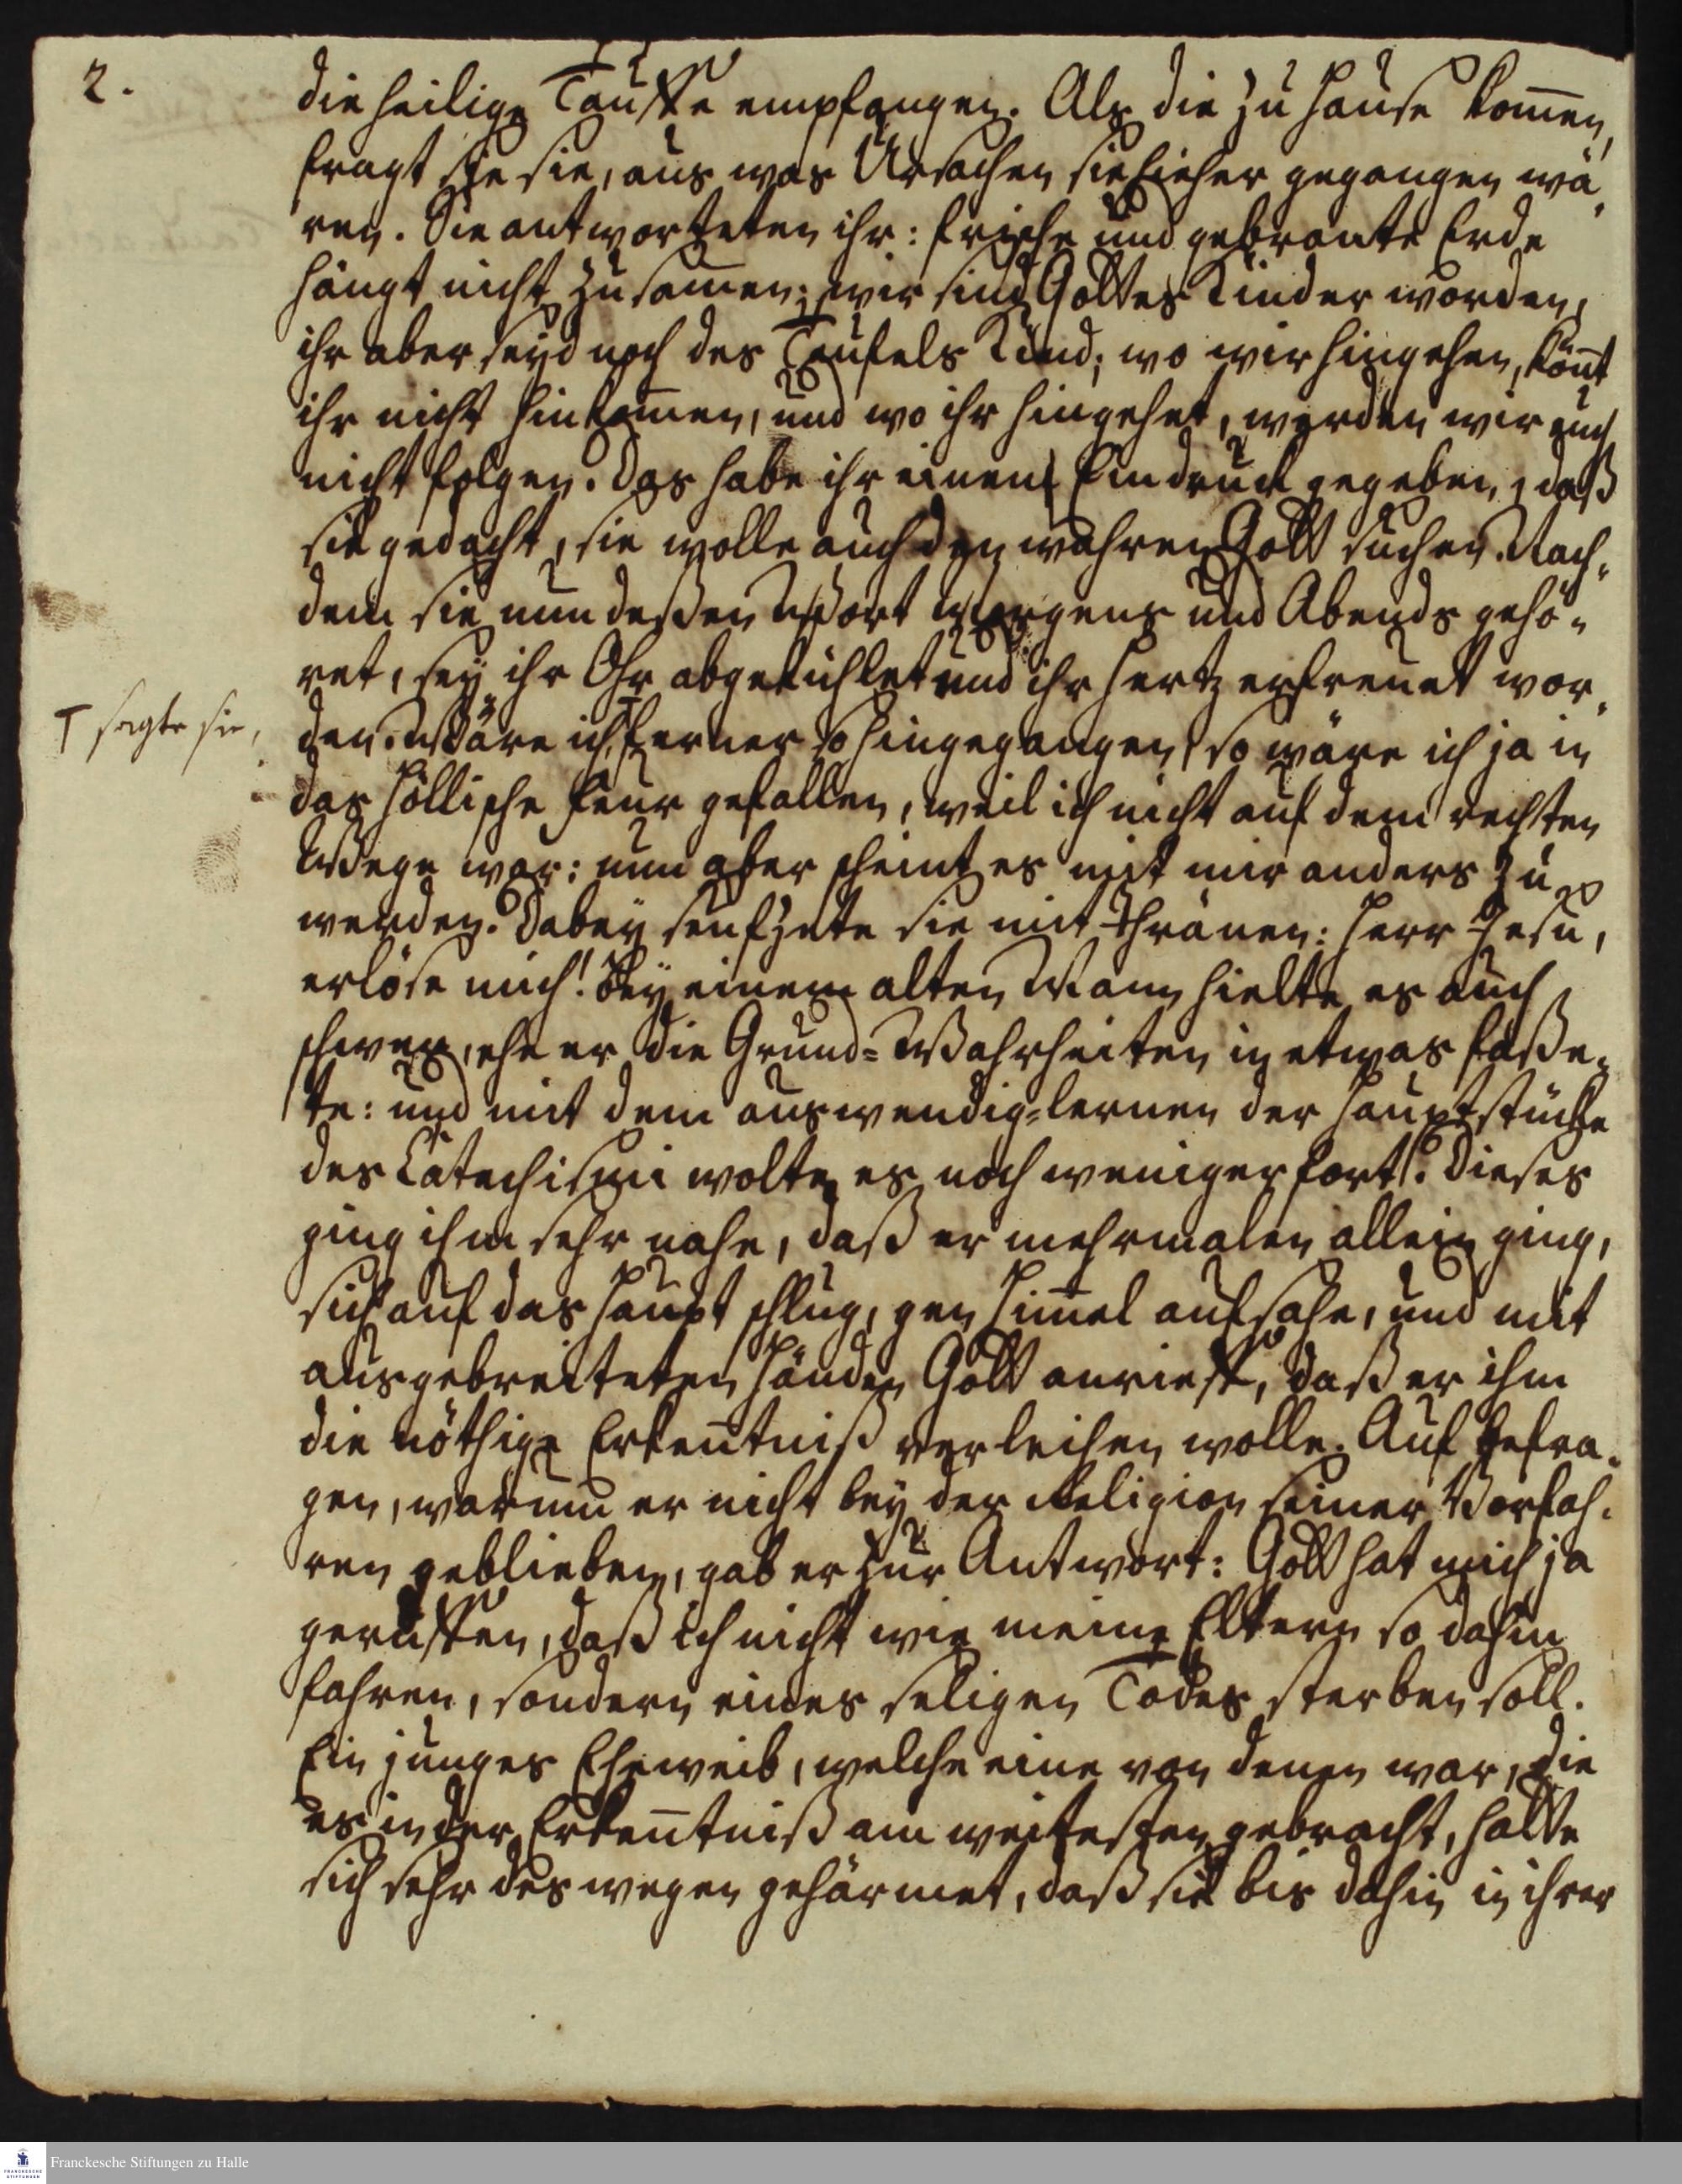 2.
die heilige Tauffe empfangen. Als die zu Hause kom̄en,
fragt sie sie, aus was Ursachen sie hieher gegangen wä-
ren. Sie antworteten ihr: frische und gebrante Erde
hängt nicht zusam̄en; wir sind Gottes Kinder worden,
ihr aber seyd noch des Teufels Kind; wo wir hingehen, kön̄t
ihr nicht hinkom̄en, und wo ihr hingehet, werden wir euch
nicht folgen. Das habe ihr einen Eindruck gegeben, daß
sie gedacht, sie wolle auch den wahren Gott suchen. Nach-
dem sie nun deßen Wort Morgens und Abends gehö-
ret, sey ihr Ohr abgekühlet und ihr Hertz erfreuet wor-
den. Wäre ich, ⊤ ferner so hingegangen, so wäre ich ja in
⊤ sagte sie,
das höllische Feur gefallen, weil ich nicht auf dem rechten
Wege war: nun aber scheint es mit mir anders zu
werden. Dabey seufzete sie mit Thränen: Herr Jesu,
erlöse mich! Bey einem alten Mann hielte es auch
schwer, ehe er die Grund-Wahrheiten in etwas faße-
te: und mit dem auswendig-lernen der Hauptstücke
des Catechismi wolte es noch weniger fort. Dieses
ging ihm sehr nahe, daß er mehrmalen allein ging,
sich auf das Haupt schlug, gen Him̄el aufsahe, und mit
ausgebreiteten Händen Gott anrieff, daß er ihm
die nöthige Erken̄tniß verleihen wolle. Auf Befra-
gen, warum er nicht bey der Religion seiner Vorfah-
ren geblieben, gab er zur Antwort: Gott hat mich ja
geruffen, daß ich nicht wie meine Eltern so dahin
fahren, sondern eines seligen Todes sterben soll.
Ein junges Eheweib, welche eine von denen war, die
es in der Erken̄tniß am weitesten gebracht, hatte
sich sehr deswegen gehärmet, daß sie bis dahin in ihrer
FRANCKESCHE STIFTUNGEN
Franckesche Stiftungen zu Halle